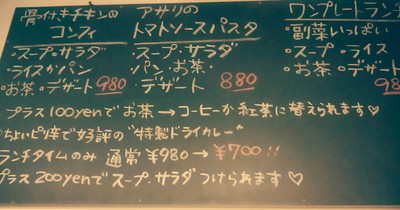 骨付きチキンの
コンフィ
・スープ・サラダ
・ライスかパン
・お茶・デザート 980
アサリの
トマトソースパスタ
スープ・サラダ
パン・お茶・
デザート 880
ワンプレートランチ
・副菜いっぱい
・スープ・ライス
・お茶・デザート
98
プラス100yenでお茶→コーヒーか紅茶に替えられます♡
ちょいピリ辛で好評の"特製ドライカレー"
ランチタイムのみ 通常 ¥980→¥700!!
プラス200yenでスープ・サラダつけられます♡